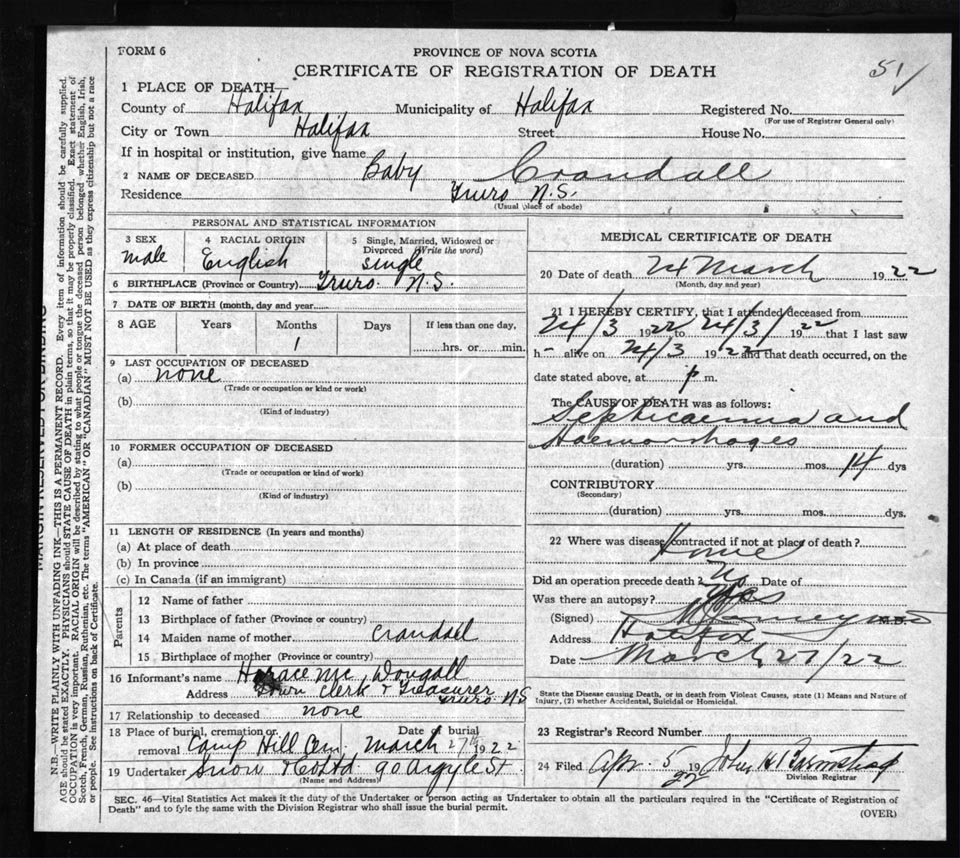 FORM 6
PROVINCE OF NOVA SCOTIA
CERTIFICATE OF REGISTRATION OF DEATH
51
1 PLACE OF DEATH—
County of Halifax Municipality of Halifax Registered No.
(For use of Registrar General only)
City or Town Halifax Street House No.
If in hospital or institution, give name
2 NAME OF DECEASED Baby Crandall
Residence Truro N.S.
(Usual place of abode)
PERSONAL AND STATISTICAL INFORMATION
3 SEX 4 RACIAL ORIGIN 5 Single, Married, Widowed or Divorced (Write the word)
male English single
6 BIRTHPLACE (Province or Country) Truro. N.S.
7 DATE OF BIRTH (month, day and year)
8 AGE Years Months Days If less than one day,
1 hrs. or min.
9 LAST OCCUPATION OF DECEASED
(a) none
(Trade or occupation or kind of work)
(b)
(Kind of industry)
10 FORMER OCCUPATION OF DECEASED
(a)
(Trade or occupation or kind of work)
(b)
(Kind of industry)
11 LENGTH OF RESIDENCE (In years and months)
(a) At place of death
(b) In province
(c) In Canada (if an immigrant)
Parents
12 Name of father
13 Birthplace of father (Province or country)
14 Maiden name of mother Crandall
15 Birthplace of mother (Province or country)
16 Informant's name Horace Mc Dougall
Address Town Clerk & Treasurer Truro N S
17 Relationship to deceased none
18 Place of burial, cremation or removal Camp Hill Cem. Date of burial March 27th 1922
19 Undertaker Snow & Co Ltd 90 Argyle St
(Name and Address)
MEDICAL CERTIFICATE OF DEATH
20 Date of death 24 March 1922
(Month, day and year)
21 I HEREBY CERTIFY, that I attended deceased from
24/3 1922 to 24/3/ 1922 that I last saw
h- alive on 24/3 1922 and that death occurred, on the
date stated above, at p m.
The CAUSE OF DEATH was as follows:
Septicaemia and
Haemorrhages
(duration) yrs. mos. 14 dys
CONTRIBUTORY
(Secondary)
(duration) yrs. mos. dys.
22 Where was disease contracted if not at place of death?
Home
Did an operation precede death? No Date of
Was there an autopsy? Yes
(Signed)
Address Halifax
Date March 27/22
State the Disease causing Death, or in death from Violent Causes, state (1) Means and Nature of
Injury, (2) whether Accidental, Suicidal or Homicidal.
23 Registrar's Record Number
24 Filed Apr. 5 1922 John H
Division Registrar
SEC. 46—Vital Statistics Act makes it the duty of the Undertaker or person acting as Undertaker to obtain all the particulars required in the "Certificate of Registration of
Death" and to fyle the same with the Division Registrar who shall issue the burial permit.
(OVER)
MARGIN RESERVED FOR BINDING
N.B.—WRITE PLAINLY WITH UNFADING INK—THIS IS A PERMANENT RECORD. Every item of information should be carefully supplied.
AGE should be stated EXACTLY. PHYSICIANS should STATE CAUSE OF DEATH in plain terms, so that it may be properly classified. Exact statement of
OCCUPATION is very important. RACIAL ORIGIN will be described by stating to what people or tongue the deceased person belonged whether English, Irish,
Scotch, French, German, Russian, Ruthenian, etc. The terms "AMERICAN" OR "CANADIAN" MUST NOT BE USED as they express citizenship but not a race
or people. See instructions on back of Certificate.